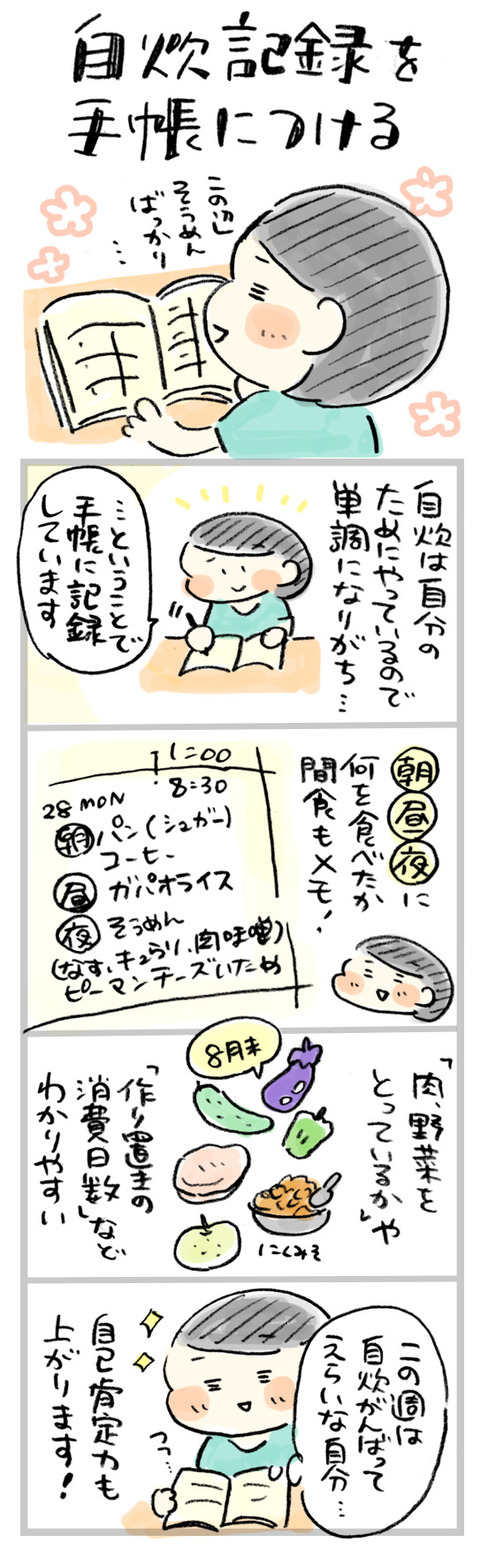 自炊記録を
手帳につける
この辺
そうめん
ばっかり
…
自炊は自分の
ためにやっているので
単調になりがち…
…ということで
手帳に記録
しています
朝昼夜に
何を食べたか
間食もメモ!
1:00
8:30
28 MON
朝 パン(シュガー)
コーヒー
昼 ガパオライス
夜 そうめん
(なす、キュウリ、肉味噌)
ピーマンチーズいため
「肉、野菜を
とっているか」や
8月末
にくみそ
「作り置きの
消費日数」など
わかりやすい
この週は
自炊がんばって
えらいな自分…
フフ…
自己肯定力も
上がります!